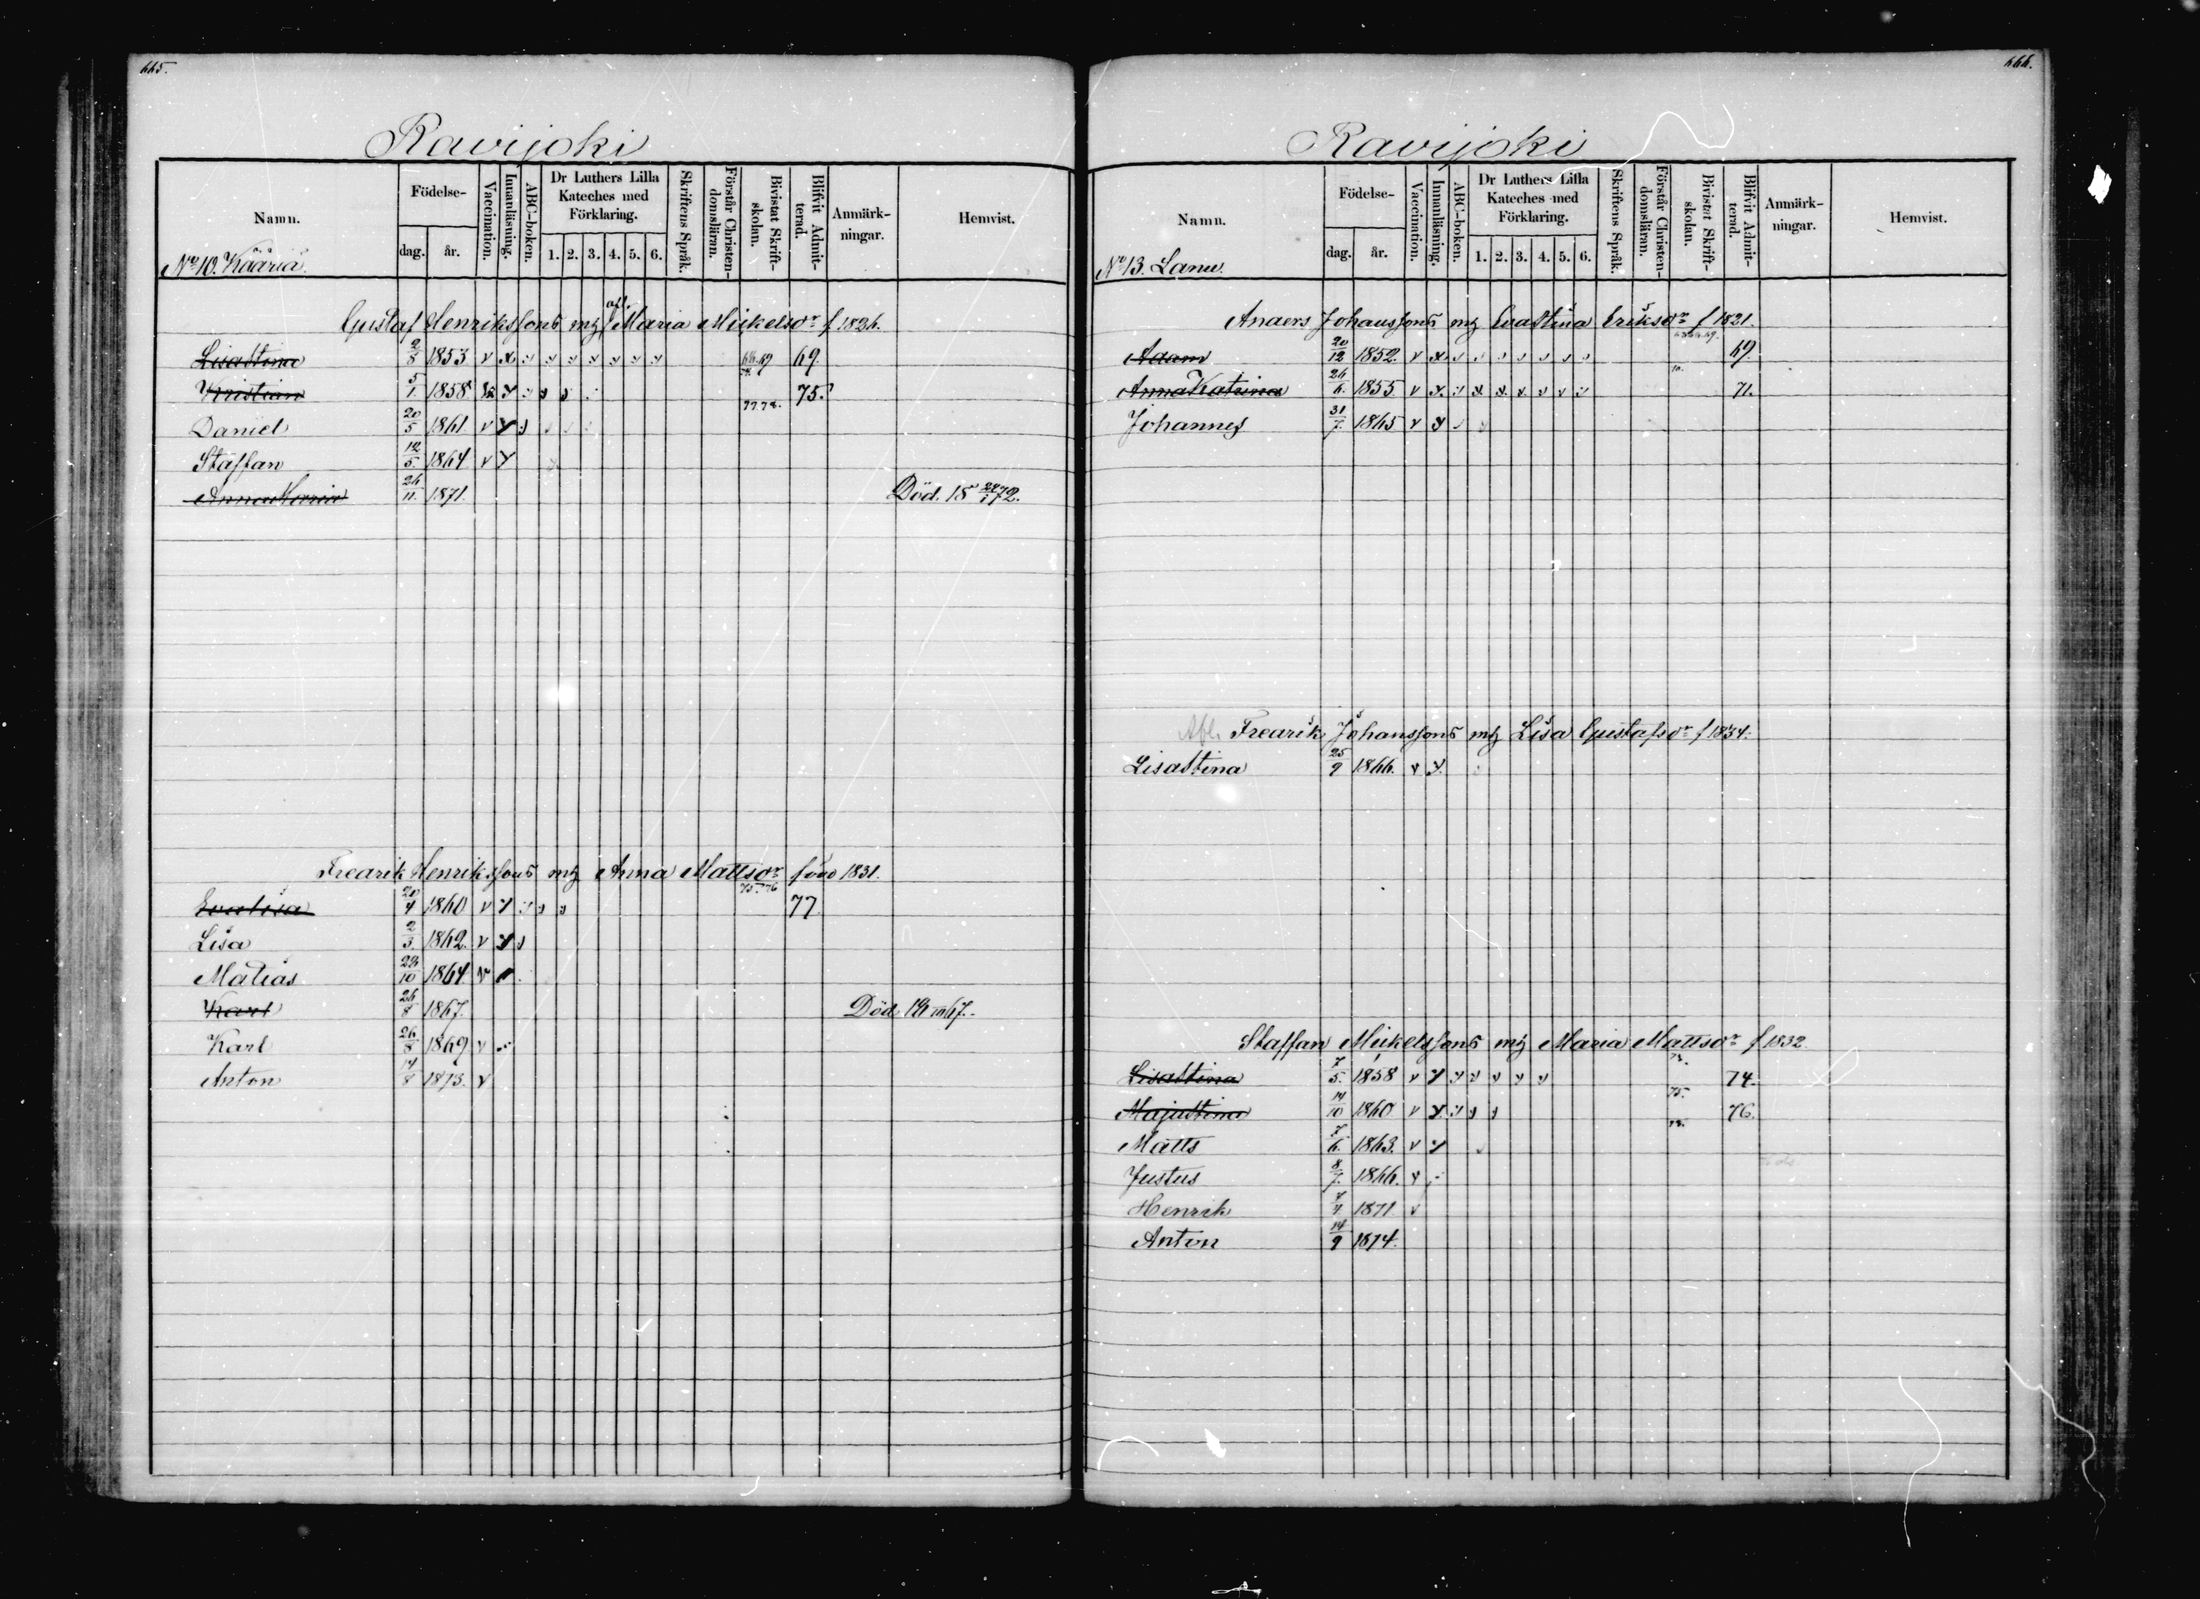 665.
Ravijoki
Namn.
Födelse-
dag. år.
Vaccination.
Innanläsning.
ABC-boken.
Dr Luthers Lilla Kateches med Förklaring.
1. 2. 3. 4. 5. 6.
Skriftens Språk.
Förstår Christendomsläran.
Bivistat Skriftskolan.
Blifvit Admitterad.
Anmärkningar.
Hemvist.
No 10. Kääriä.
Gustaf Henrikssons mz afl. Maria Mickelsdr f 1826.
Lisastina 2/8 1853 v x 66.69 69.
Kristian 5/1. 1858 75.
77.78.
Daniel 20/5 1861 v
Staffan 12/5. 1864 v
Anna Maria 26/11. 1871. Död. 18 29/1 72.
Fredrik Henrikssons mz Anna Mattsdr född 1831.
75.76
Evalisa 20/4 1860 v 77.
Lisa 2/3. 1862. v
Matias 1864. v
Karl 26/8 1867. Död
Karl 26/8 1869 v
Anton 14/8 1873. v
666.
Ravijoki
Namn.
Födelse-
dag. år.
Vaccination.
Innanläsning.
ABC-boken.
Dr Luthers Lilla Kateches med Förklaring.
1. 2. 3. 4. 5. 6.
Skriftens Språk.
Förstår Christendomsläran.
Bivistat Skriftskolan.
Blifvit Admitterad.
Anmärkningar.
Hemvist.
No 13. Lanu.
Anders Johanssons mz Evastina Eriksdr f 1821.
Adam 20/12 1852. v x 69.
70.
Anna Katrina 26/6. 1855 v x 71.
Johannes 31/7. 1865 v
Afl. Fredrik Johanssons mz Lisa Gustafsdr f 1834.
Lisastina 25/9 1866. v
Staffan Mickelssons mz Maria Mattsdr f 1832
Lisastina 7/5. 1858 v 74.
75.
Majastina 14/10 1860 v 76.
78.
Matts 7/6. 1863. v
Justus 8/7. 1866. v
Henrik 1871 v
Anton 14/9 1874.